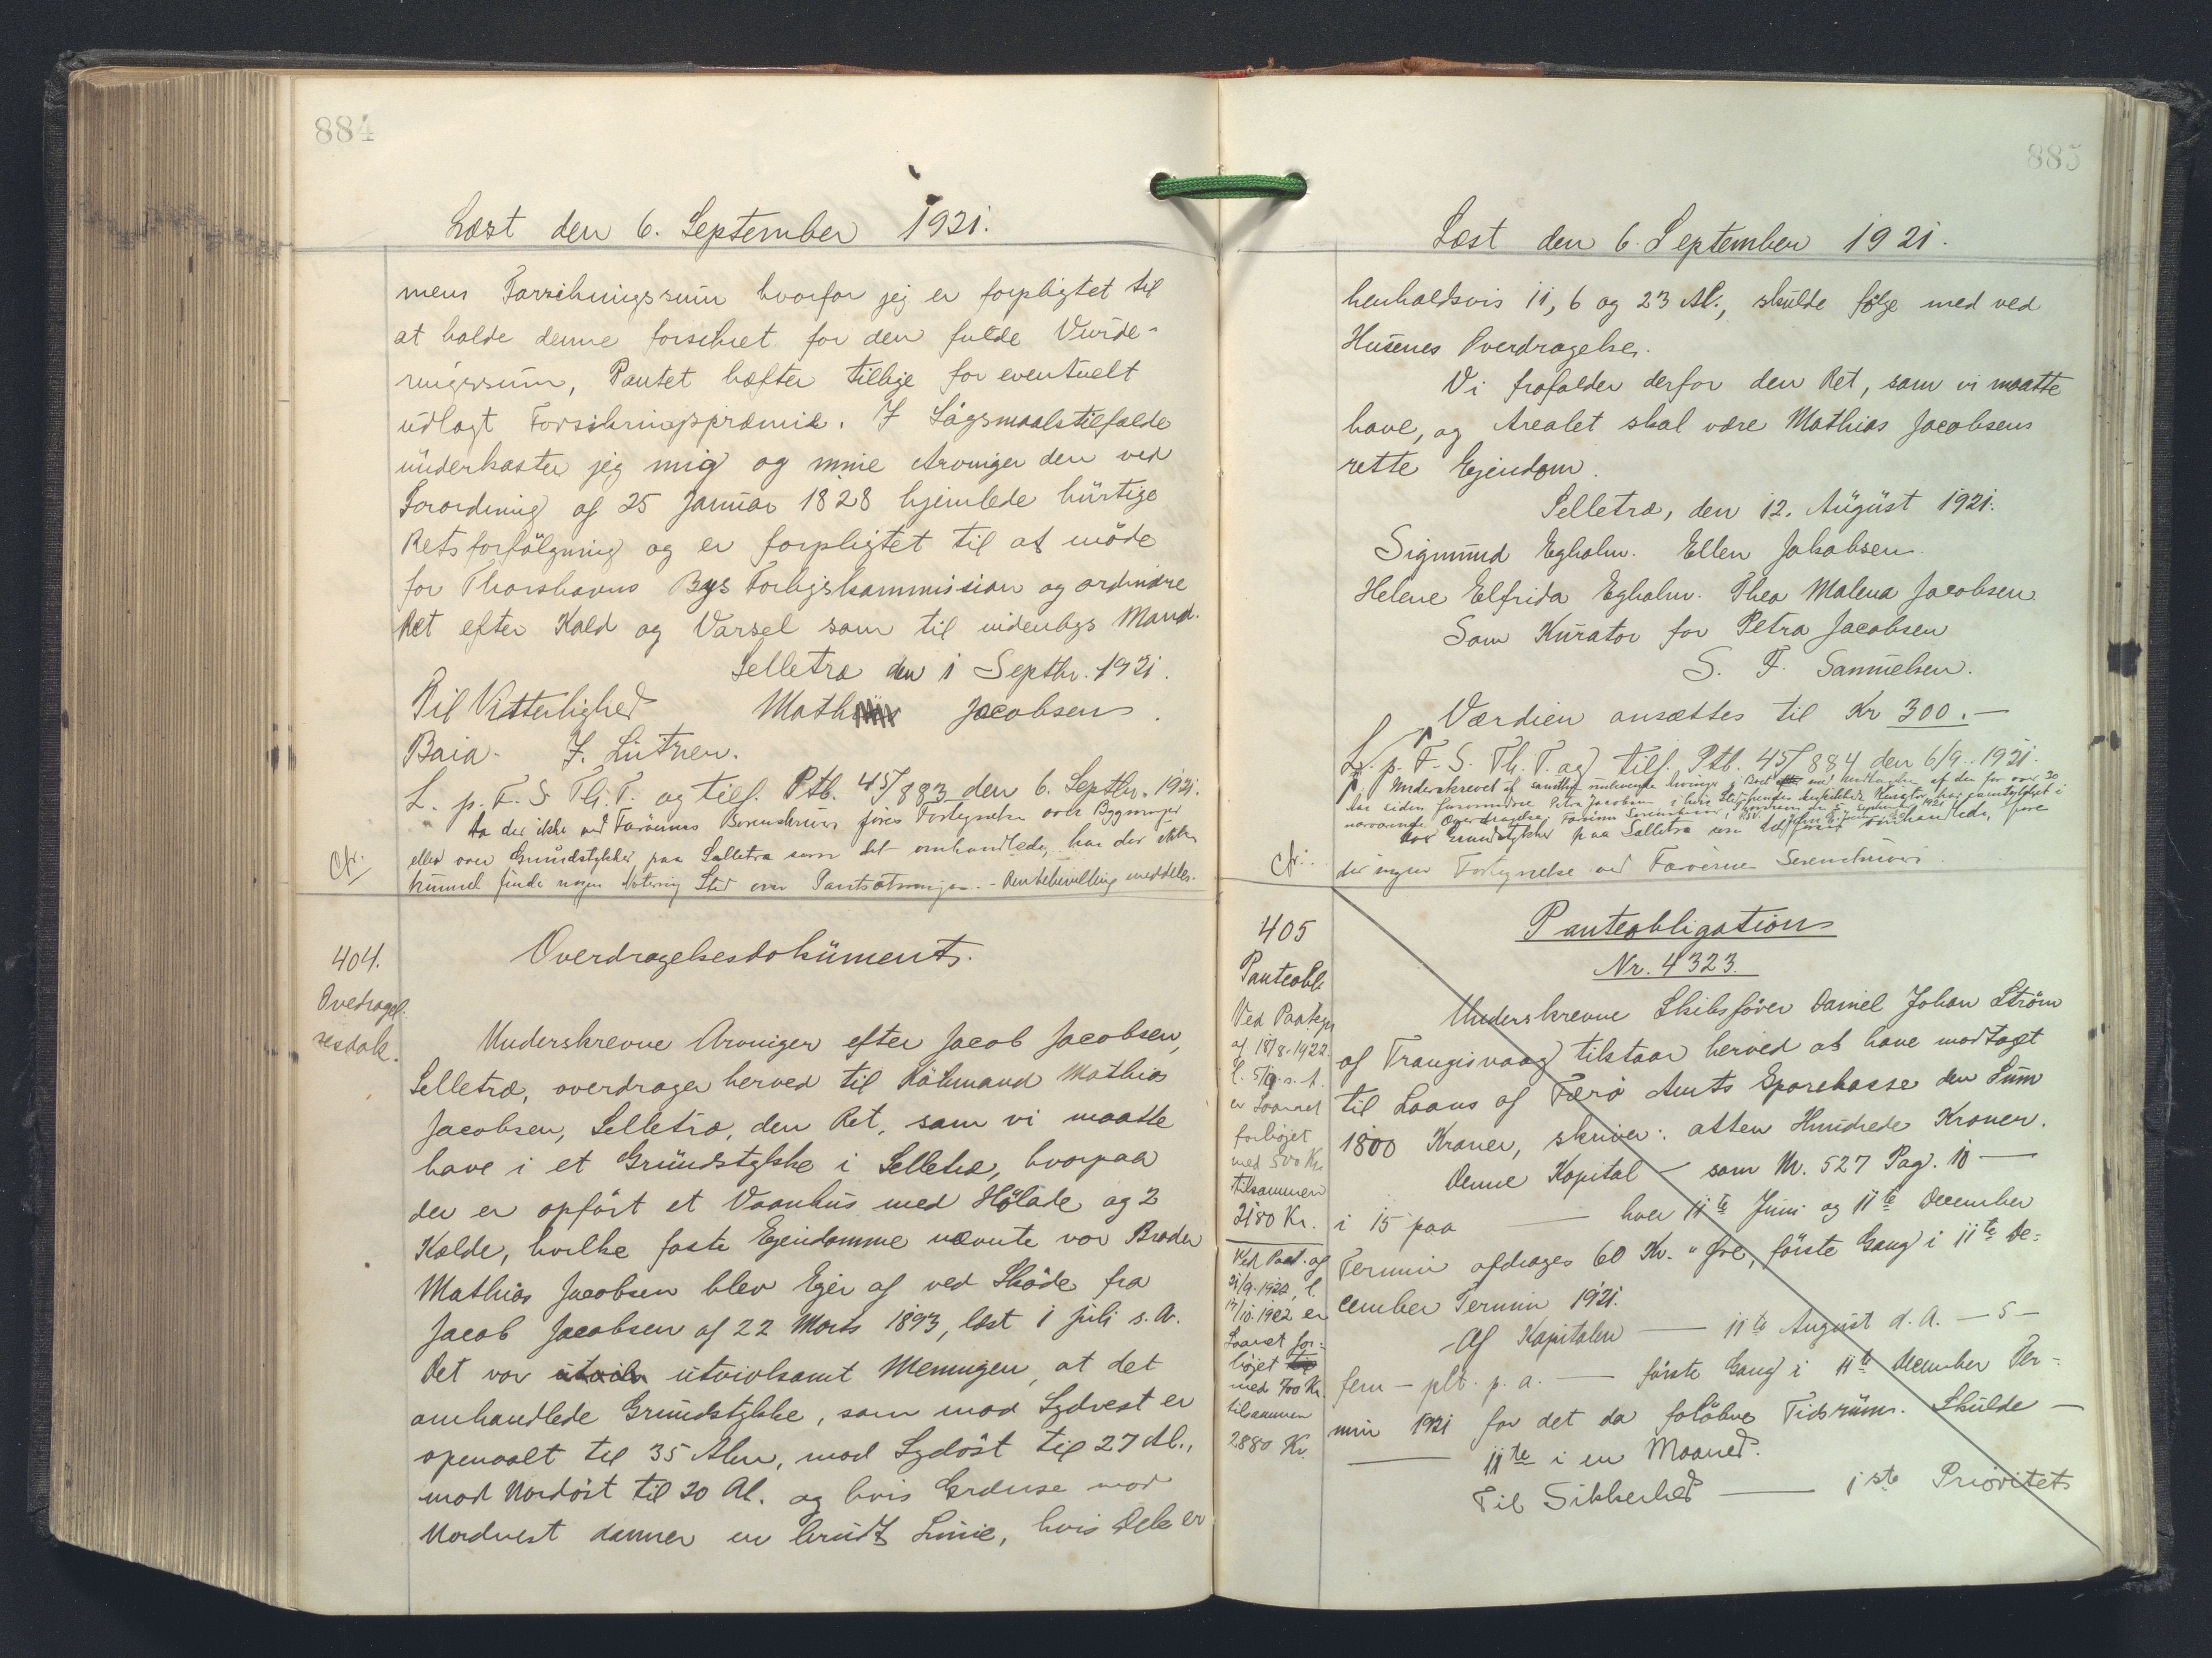 884
Læst den 6. September 1921.
mens Forsikringssum hvorfor jeg er forpligtet til
at holde denne forsikret for den fulde Vurde-
ringssum, Pantet hæfter tillige for eventuelt
udlagt Forsikringspræmie. I Sögsmaalstilfælde
underkaster jeg mig og mine Arvinger den ved
Forordning af 25 Januar 1828 hjemlede hurtige
Retsforfölgning og er forpligtet til at möde
for Thorshavns Bys Forligskommission og ordinære
Ret efter Kald og Varsel som til indenbys Mand.
Selletræ den 1 Septbr. 1921.
Til Vitterlighed Math Jacobsen.
Baia. J. Lützen.
L. p. F. S. Th. T. og tilf. Ptb. 45/883 den 6. Septbr. 1921.
Da der ikke ved Færöernes Sorenskriveri föres Fortegnelse over Bygninger
eller over Grundstykker paa Selletræ som det omhandlede, har der ikke
kunnet finde nogen Notering Sted over Pantsætningen. - Rentebevilling meddeles.
Cfr.
404.
Overdragel-
sesdok.
Overdragelsesdokument.
Underskrevne Arvinger efter Jacob Jacobsen,
Selletræ, overdrager herved til Købmand Mathias
Jacobsen, Selletræ, den Ret, som vi maatte
have i et Grundstykke i Selletræ, hvorpaa
der er opfört et Vaanhus med Hølade og 2
Kælde, hvilke faste Ejendomme nævnte vor Broder
Mathias Jacobsen blev Ejer af ved Sköde fra
Jacob Jacobsen af 22 Marts 1893, læst 1 juli s. A.
Det var utvivlsomt Meningen, at det
omhandlede Grundstykke, som mod Sydvest er
opmaalt til 35 Alen, mod Sydöst til 27 Al.,
mod Nordöst til 20 Al. og hvis Grænse mod
Nordvest danner en brudt Linie, hvis Dele er
885
Læst den 6. September 1921.
henholdsvis 11, 6 og 23 Al., skulde följe med ved
Husenes Overdragelse.
Vi frafalder derfor den Ret, som vi maatte
have, og Arealet skal være Mathias Jacobsens
rette Ejendom.
Selletræ, den 12. August 1921.
Sigmund Egholm. Ellen Jakobsen.
Helene Elfrida Egholm. Thea Malena Jacobsen
Som Kurator for Petra Jacobsen
S. F. Samuelsen.
Værdien ansættes til Kr 300.-
L. p. F. S. Th. T. og tilf. Ptb. 45/884 den 6/9. 1921.
Underskrevet af samtlige Arvinger i Boet med Undtagelse af den for over 20
Aar siden Petra Jacobsen, Kurator har samtykket i
nærværende Overdragelse, Færöernes Sorenskriveri, Thorshavn den 5. September 1921
Over Grundstykker paa Selletræ som det omhandlede, föres
der ingen Fortegnelse ved Færöerne Sorenskriveri
Cfr.
405
Panteobl.
Ved Paategn.
af 18/8. 1922
l. 5/9. s. A.
er Laanet
forhöjet
med 500 Kr.
tilsammen
2180 Kr.
Ved Paat. af
21/9. 1922, l.
17/10. 1922 er
Laanet for-
höjet
med 700 Kr.
tilsammen
2880 Kr.
Panteobligation
Nr. 4323.
Underskrevne Skibsförer Daniel Johan Ström
af Trangisvaag tilstaar herved at have modtaget
til Laans af Færö Amts Sparekasse den Sum
1800 Kroner, skriver: atten Hundrede Kroner.
Denne Kapital — som Nr. 527 Pag. 10 —
i 15 paa — hver 11te Juni og 11te December
Termin afdrages 60 Kr. " Øre, förste Gang i 11te De-
cember Termin 1921.
Af Kapitalen — 11te August d. A. — 5 —
fem — pCt. p. a. — förste Gang i 11te December Ter-
min 1921 for det da forlöbne Tidsrum. Skulde —
— 11te i en Maaned.
Til Sikkerhed — 1ste Prioritets